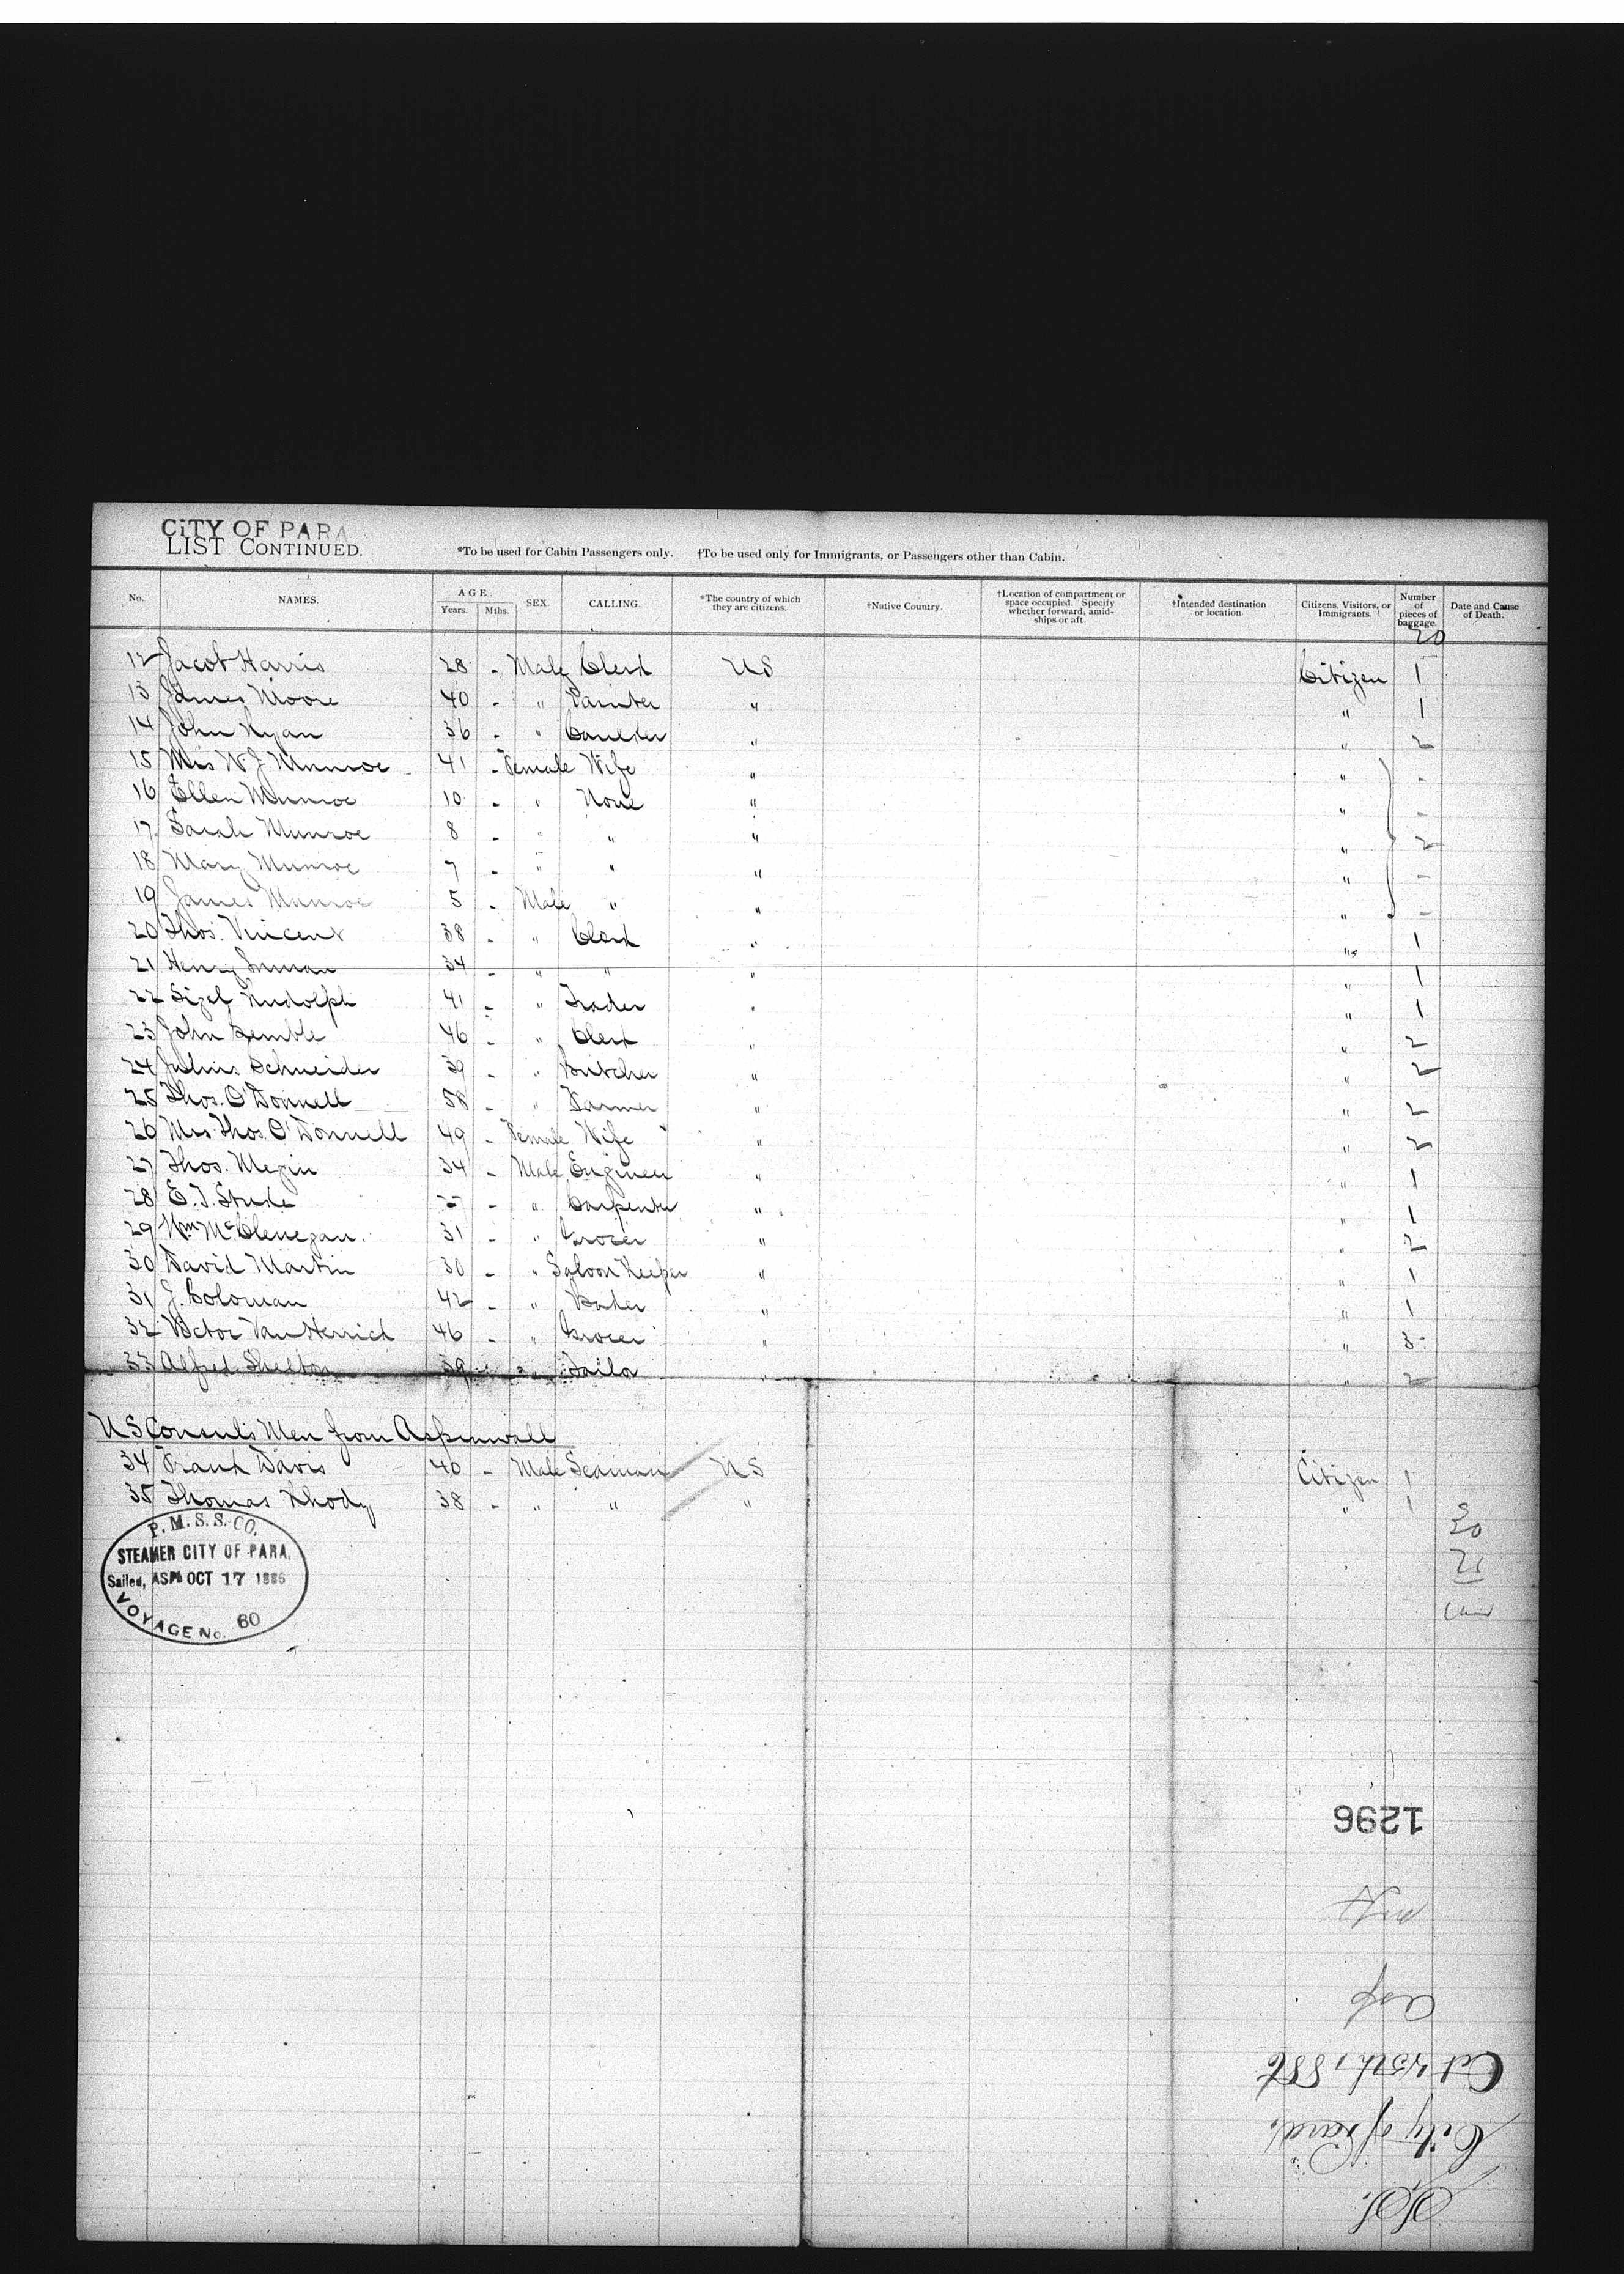 CITY OF PARA
LIST CONTINUED. *To be used for Cabin Passengers only. †To be used only for Immigrants, or Passengers other than Cabin.
No. NAMES. AGE. Years. Mths. SEX. CALLING. *The country of which they are citizens. †Native Country. †Location of compartment or space occupied. Specify whether forward, amidships or aft. †Intended destination or location. Citizens, Visitors, or Immigrants. Number of pieces of baggage. Date and Cause of Death.
20
12 Jacob Harris 28 - Male Clerk US Citizen 1
13 James Moore 40 - " Painter " " 1
14 John Ryan 36 - " " " 2
15 Mrs W J Munroe 41 - Female Wife " " -
16 Ellen Munroe 10 - " None " " -
17 Sarah Munroe 8 - " " " " 2
18 Mary Munroe 7 - " " " " -
19 James Munroe 5 - Male " " " -
20 Thos. Vincent 38 - " Clerk " " 1
21 Henry Inman 34 - " " " " 1
22 Sizel Rudolph 41 - " Trader " " 1
23 John Kemble 46 - " Clerk " " 2
24 Julius Schneider 39 - " Butcher " " 2
25 Thos. O'Donnell 58 - " Farmer " " 2
26 Mrs. Thos. O'Donnell 49 - Female Wife " " 2
27 Thos. Megin 34 - Male Engineer " " 1
28 E. T. Stude 27 - " Carpenter " " 1
29 Wm McClenegan 31 - " Grocer " " 2
30 David Martin 30 - " Saloon Keeper " " 1
31 J. Coloman 42 - " " " 1
32 Victor Van Herrick 46 - " Grocer " " 3
33 Alfred Shelton 39 - " Tailor " " 2
US Consuls Men from Aspinwall
34 Frank Davis 40 - Male Seaman US Citizen 1
35 Thomas Rhody 38 - " " " " 1
P. M. S. S. CO.
STEAMER CITY OF PARA,
Sailed, ASP. OCT 17 1886
VOYAGE No. 60
20
21
1296
Asp
Oct 25th, 1886
City of Para.
S.S.